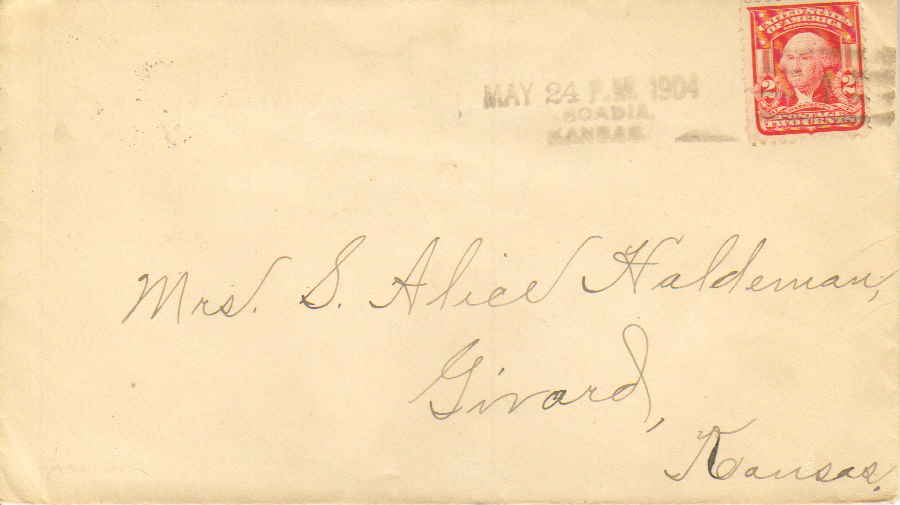 UNITED STATES
OF AMERICA
MAY 24 P.M. 1904
KANSAS.
2 2
POSTAGE
TWO CENTS
Mrs. S. Alice Haldeman,
Girard,
Kansas.